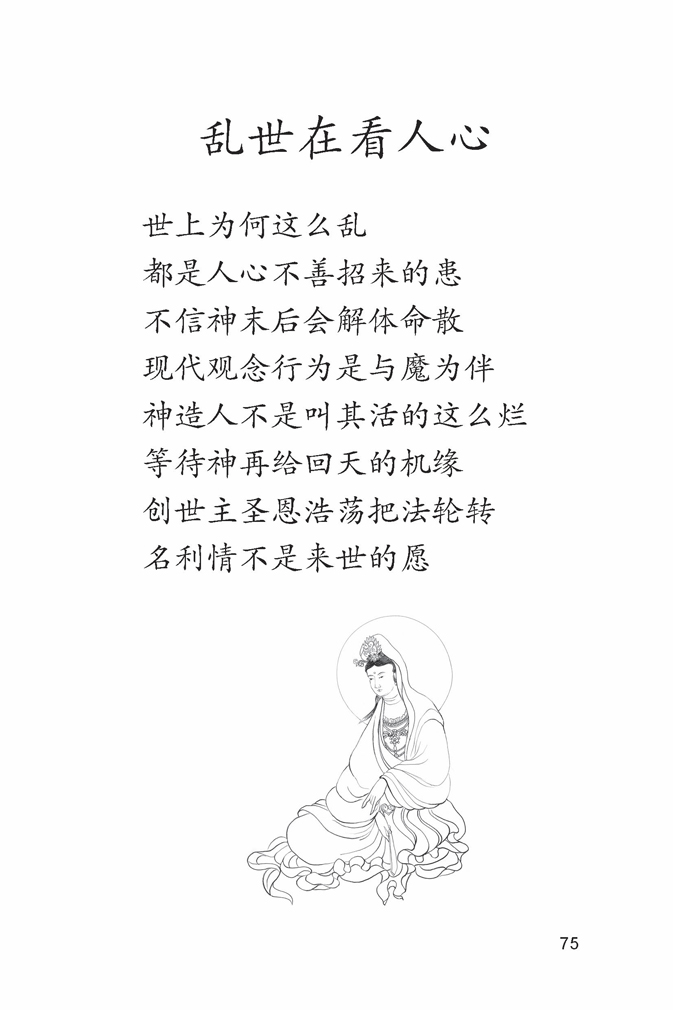 乱世在看人心
世上为何这么乱
都是人心不善招来的患
不信神末后会解体命散
现代观念行为是与魔为伴
神造人不是叫其活的这么烂
等待神再给回天的机缘
创世主圣恩浩荡把法轮转
名利情不是来世的愿
75